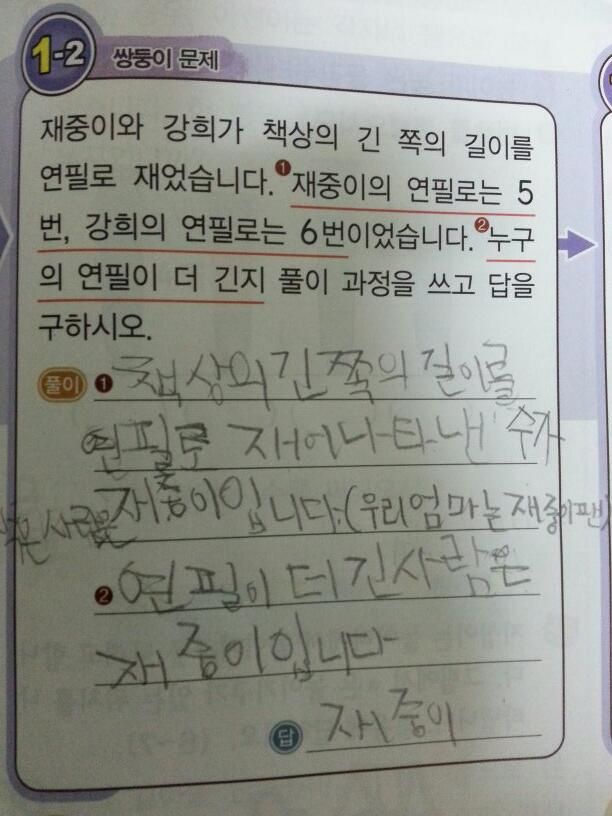 1-2 쌍둥이 문제
재중이와 강희가 책상의 긴 쪽의 길이를
연필로 재었습니다. ❶재중이의 연필로는 5
번, 강희의 연필로는 6번이었습니다. ❷누구
의 연필이 더 긴지 풀이 과정을 쓰고 답을
구하시오.
풀이 ❶ 책상의 긴 쪽의 길이를
연필로 재어나타낸 수가
사람은 재중이입니다.(우리엄마는 재중이팬)
❷ 연필이 더 긴사람은
재중이입니다
답 재중이